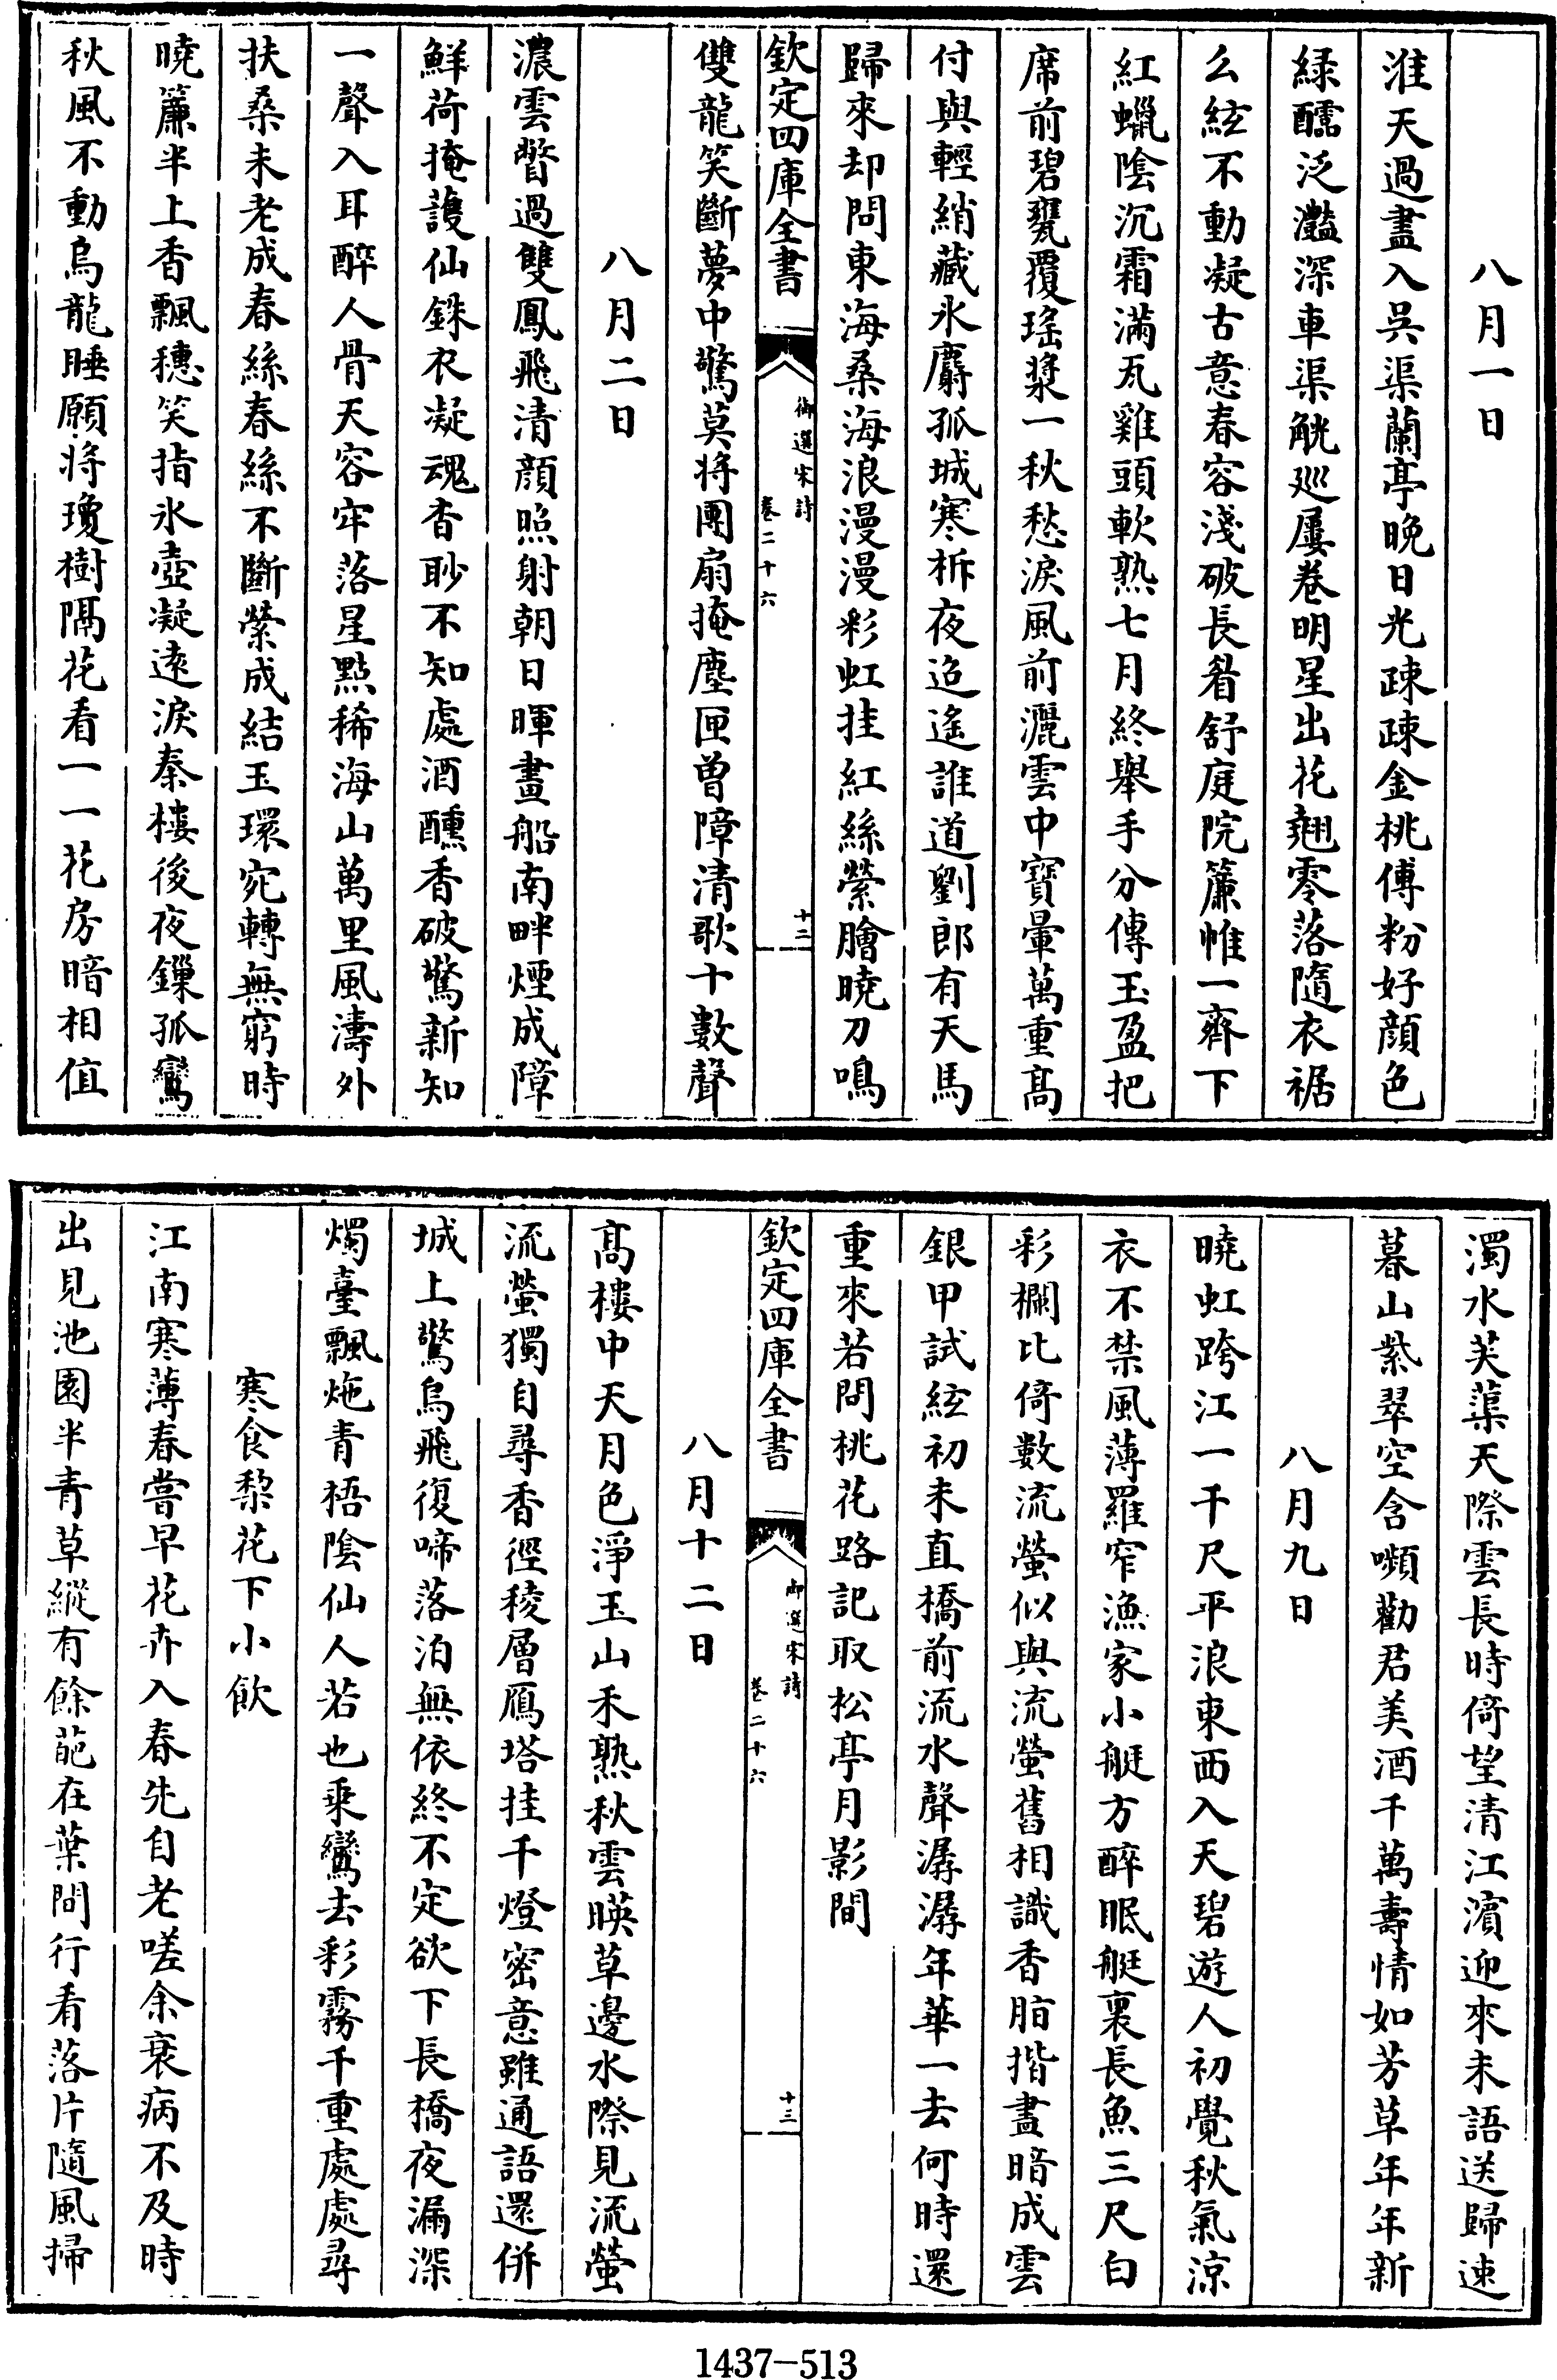 八月一日
淮天過盡入吳渠蘭亭晚日光疎疎金桃傅粉好顔色
緑醽泛灩深車渠觥廵屢卷明星出花翹零落隨衣裾
么絃不動凝古意春容淺破長眉舒庭院簾帷一齊下
紅蠟陰沉霜滿瓦雞頭軟熟七月終舉手分傳玉盈把
席前碧甕覆瑤漿一秋愁淚風前灑雲中寳暈萬重髙
付與輕綃藏氷麝孤城寒柝夜迢遙誰道劉郎有天馬
歸來却問東海桑海浪漫漫彩虹挂紅絲縈膾曉刀鳴
欽定四庫全書
御選宋詩
卷二十六
十二
雙龍笑斷夢中驚莫將團扇掩塵匣曾障清歌十數聲
八月二日
濃雲瞥過雙鳳飛清顔照射朝日暉畫船南畔煙成障
鮮荷掩護仙銖衣凝魂杳眇不知處酒醺香破驚新知
一聲入耳醉人骨天容牢落星點稀海山萬里風濤外
扶桑未老成春絲春絲不斷縈成結玉環宛轉無窮時
曉簾半上香飄穗笑指氷壺凝逺淚秦樓後夜鏁孤鸞
秋風不動烏龍睡願將瓊樹隔花看一一花房暗相值
濁水芙蕖天際雲長時倚望清江濱迎來未語送歸速
暮山紫翠空含嚬勸君美酒千萬壽情如芳草年年新
八月九日
曉虹跨江一千尺平浪東西入天碧遊人初覺秋氣涼
衣不禁風薄羅窄漁家小艇方醉眠艇裏長魚三尺白
彩欄比倚數流螢似與流螢舊相識香脂揩畫暗成雲
銀甲試絃初未直橋前流水聲潺潺年華一去何時還
重來若問桃花路記取松亭月影間
欽定四庫全書
御選宋詩
卷二十六
十三
八月十二日
髙樓中天月色淨玉山禾熟秋雲暎草邊水際見流螢
流螢獨自尋香徑稜層鴈塔挂千燈密意雖通語還併
城上驚烏飛復啼落泊無依終不定欲下長橋夜漏深
燭臺飄灺青梧陰仙人若也乗鸞去彩霧千重處處尋
寒食棃花下小飲
江南寒薄春嘗早花卉入春先自老嗟余衰病不及時
出見池園半青草縱有餘葩在葉間行看落片隨風掃
1437-513